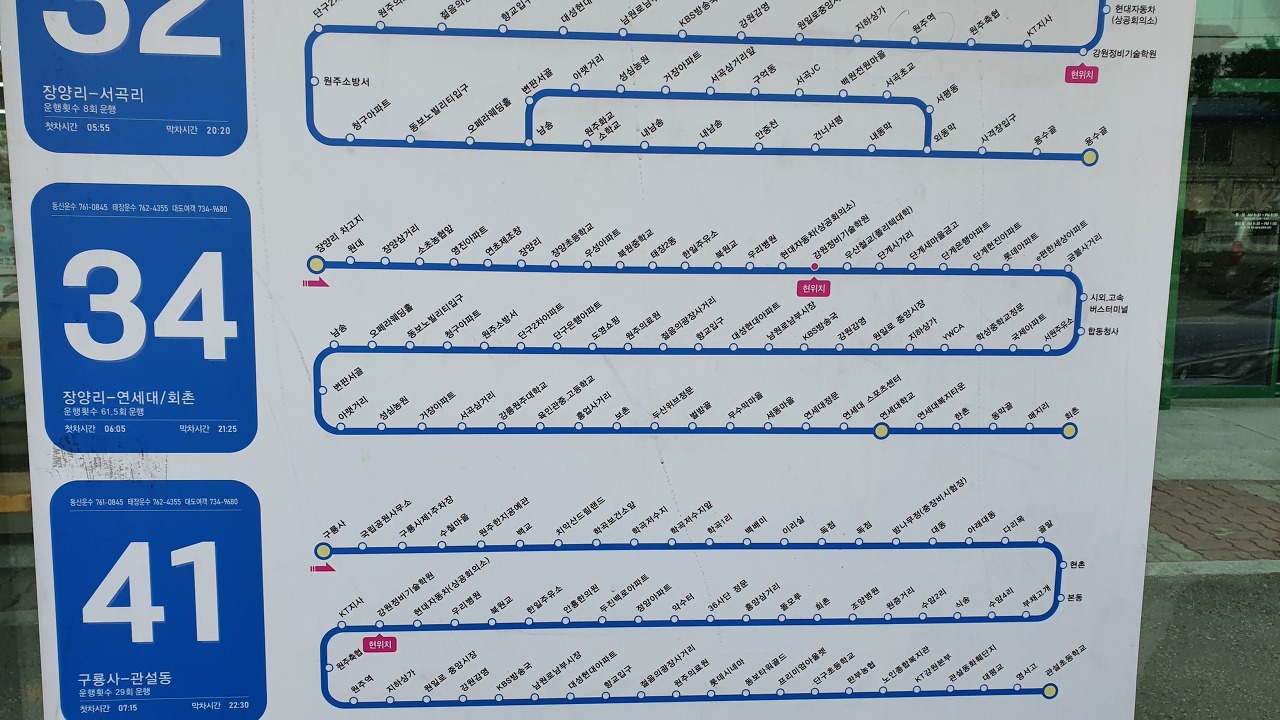 32
장양리-서곡리
운행횟수 8회 운행
첫차시간 05:55 막차시간 20:20
현대자동차
(상공회의소)
원주역
원주축협
KT지사
강원정비기술학원
현위치
지하상가
강원감영
원주소방서
청구아파트
동보노빌리티입구
오페라웨딩홀
번판서골
아랫거리
성심농원
거장아파트
서곡삼거리앞
구억동
서곡JC
서곡초교
서평동
남송
원주학교
소학교
내남송
내남송
안중천
건너서평
내동막
외동막
사격장입구
용수골
용수골
동신운수 761-0845 태장운수 762-4355 대도여객 734-9680
34
장양리-연세대/회촌
운행횟수 61.5회 운행
첫차시간 06:05 막차시간 21:25
장양리 차고지
원대
장양삼거리
소초농협앞
영진아파트
연초제조창
장양리
장양초등학교
우성아파트
북원중학교
태장2동
한일주유소
북원교
우리병원
현대자동차(상공회의소)
강원정비기술학원
우산철교(폴리텍대학)
단계사거리
단계새마을금고
단계요형아파트
단계현진아파트
롯데아파트
e편한세상아파트
금불사거리
현위치
시외.고속
버스터미널
합동청사
남송
오페라웨딩홀
동보노빌리티입구
청구아파트
원주소방서
단구2차아파트
단구은행아파트
도영쇼핑
원주의료원
젊음의광장사거리
향교입구
대성현대아파트
남원로남부시장
KBS방송국
강원감영
원일로 중앙시장
지하상가
YWCA
학성중학교정문
국제아파트
서원주유소
번판서골
아랫거리
성심농원
거장아파트
서곡삼거리
강릉원주대학교
육민관중.고등학교
흥업사거리
보촌
두산위브정문
밸밭골
옥수락마을
세동마을
연세대정문
연세대 스포츠센터
연세대학교
연세대복지타운
한촌
동막골
매지리
회촌
동신운수 761-0845 태장운수 762-4355 대도여객 734-9680
41
구룡사-관설동
운행횟수 29회 운행
첫차시간 07:15 막차시간 22:30
구룡사
국립공원사무소
구룡사제1주차장
수철마을
원주한지공예관
학교
치악산드림랜드
학곡보건소앞
학곡저수지
학곡저수지앞
학곡1리
백배미
이리실
독점
독점
밤나무정(총장비시험장)
대동
아래대동
다리목
골말
현촌
본동
KT지사
강원정비기술학원
현대자동차(상공회의소)
우리병원
북원교
한일주유소
안흥한의원
두진백로아파트
정암아파트
약수터
36사단 정문
흥양삼거리
돌모루
회촌
조양병원
원증거리
수암2리
식송
수암4리
부채고개
현위치
원주축협
원주역
지하상가
원일로 중앙시장
강원감영
KBS방송국
남원로남부시장
대성현대아파트
향교입구
젊음의광장사거리
원주의료원
롯데시네마
동보타워골드
프리미엄아울렛
단구초등학교
남부농협
노인종합복지관
KT강원본부
관설동화훼단지
대평교
영서고
관설초등학교